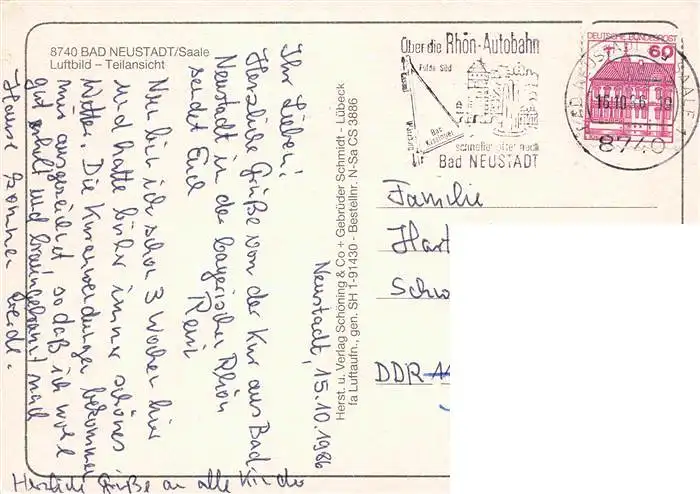 8740 BAD NEUSTADT/Saale
Luftbild – Teilansicht
Über die Rhön-Autobahn
Fulda Süd
Bad
Kissingen
schneller öfter nach
Bad NEUSTADT
DEUTSCHE BUNDESPOST
60
8740
Neustadt, 15.10.1986
Ihr Lieben!
Herzliche Grüße von der Kur aus Bad
Neustadt in der bayerischen Rhön
sendet Euch
Nun bin ich schon 3 Wochen hier
und hatte bisher immer schönes
Wetter. Die Kuranwendungen bekommen
mir ausgezeichnet sodaß ich wohl
gut erholt und braungebrannt nach
Hause kommen werde.
Herzliche Grüße an alle Kinder
Herst. u. Verlag Schöning & Co + Gebrüder Schmidt – Lübeck
fa Luftaufn., gen. SH 1-91430 - Bestellnr. N-Sa CS 3886
Familie
Hart
Schw
DDR